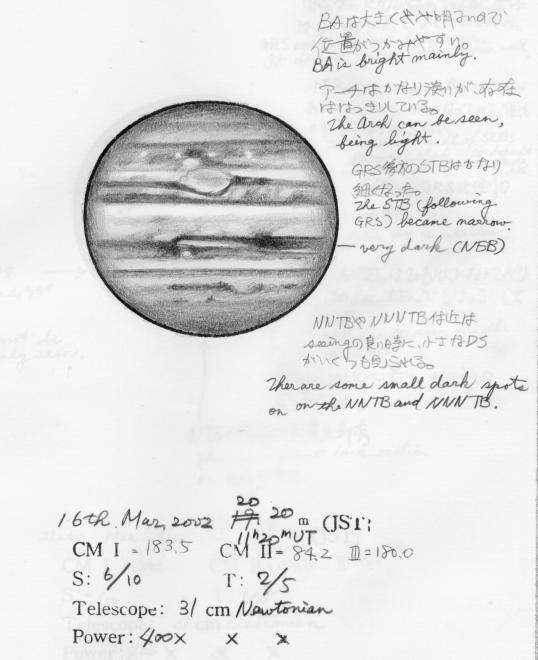 BAは大きくやや明るいので
位置がつかみやすい。
BA is bright mainly.
アーチはかなり淡いが、存在
ははっきりしている。
The Arch can be seen,
being light.
GRS後方のSTBはかなり
細くなった。
The STB (following
GRS) became narrow.
very dark (NEB)
NNTBやNNNTB付近は
seeingの良い時に、小さなDS
がいくつも見られる。
Ther are some small dark spots
on on the NNTB and NNNTB.
16th. Mar, 2002 20 20 m (JST)
11h20mUT
CM I = 183.5 CM II = 84.2 III = 180.0
S: 6/10 T: 2/5
Telescope: 31 cm Newtonian
Power: 400x x x